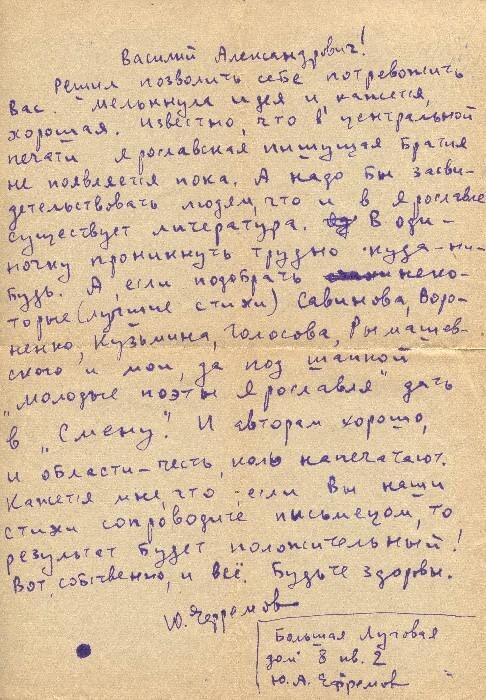 Василий Александрович!
Решил позволить себе потревожить
Вас. Мелькнула идея и, кажется,
хорошая. Известно, что в центральной
печати Ярославская пишущая братия
не появляется пока. А надо бы засви-
детельствовать людям, что и в Ярославле
существует литература. В оди-
ночку проникнуть трудно куда-ни-
будь. А если подобрать неко-
торые (лучшие стихи) Савинова, Воро-
ненко, Кузьмина, Голосова, Рымашев-
ского и мои, да под шапкой
"Молодые поэты Ярославля" дать
в "Смену". И авторам хорошо,
и области-честь, коль напечатают.
Кажется мне, что если Вы наши
стихи сопроводите письмецом, то
результат будет положительный!
Вот, собственно, и всё. Будьте здоровы.
Ю. Ефремов
Большая Луговая
дом 3 кв. 2
Ю. А. Ефремов